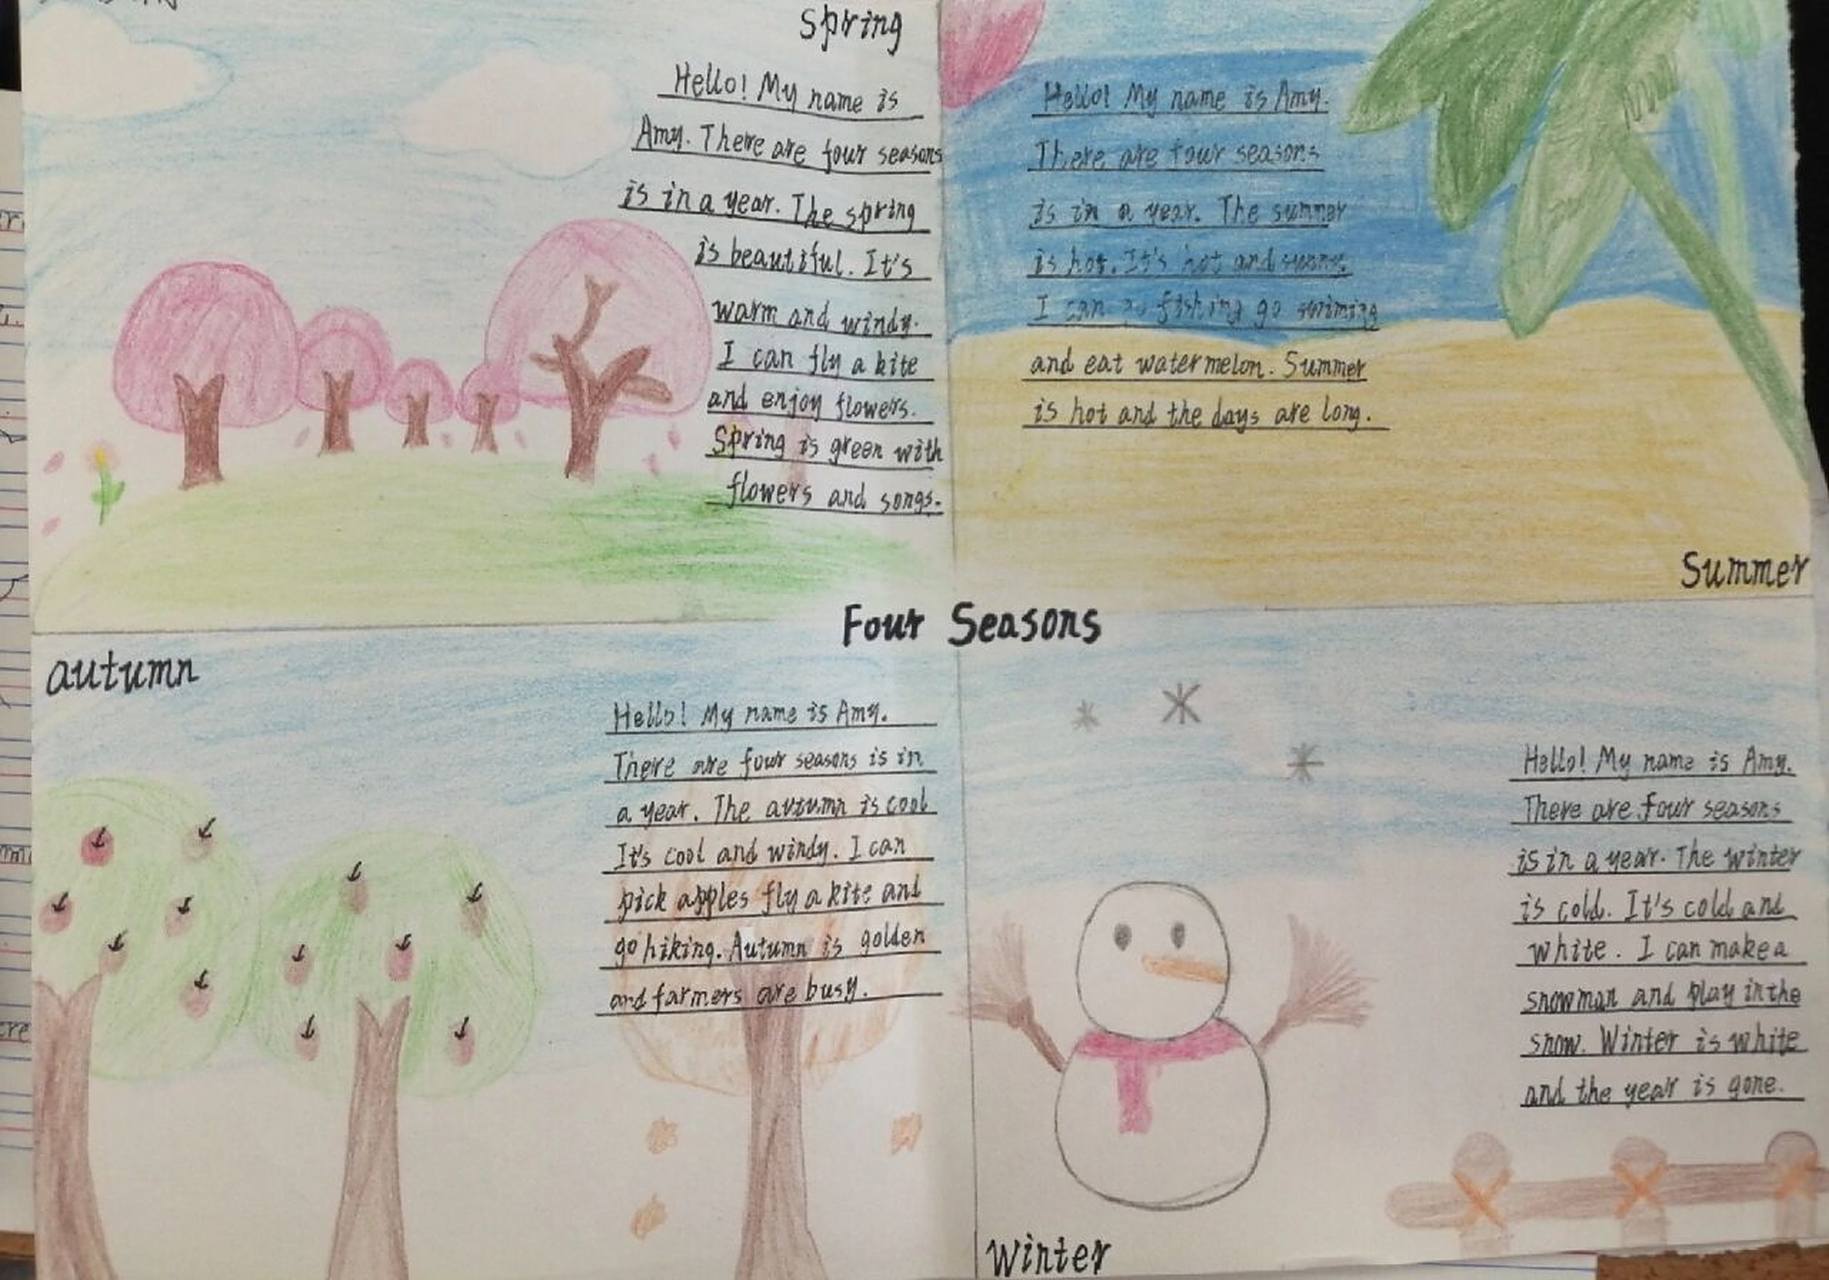 Spring
Hello! My name is
Amy. There are four seasons
is in a year. The spring
is beautiful. It's
warm and windy.
I can fly a kite
and enjoy flowers.
Spring is green with
flowers and songs.
Hello! My name is Amy.
There are four seasons
is in a year. The summer
is hot. It's hot and sunny.
I can go fishing go swiming
and eat watermelon. Summer
is hot and the days are long.
Summer
Four Seasons
autumn
Hello! My name is Amy.
There are four seasons is in
a year. The autumn is cool
It's cool and windy. I can
pick apples fly a kite and
go hiking. Autumn is golden
and farmers are busy.
Hello! My name is Amy.
There are four seasons
is in a year. The winter
is cold. It's cold and
white. I can make a
snowman and play in the
snow. Winter is white
and the year is gone.
Winter